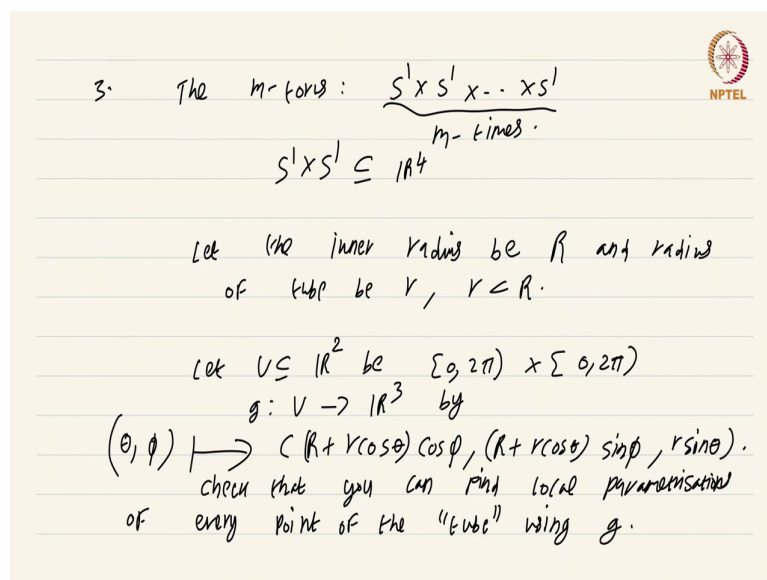 3. The m-torus : S¹ x S¹ x -- x S¹
m-times.
S¹ x S¹ ⊆ ℝ⁴
NPTEL
Let the inner radius be R and radius
of tube be r, r < R.
Let U ⊆ ℝ² be [0, 2π) x [0, 2π)
g: U -> ℝ³ by
(θ, φ) ↦ ((R + r cosθ) cosφ, (R + r cosθ) sinφ, r sinθ).
check that you can find local parametrisations
of every point of the "tube" using g.